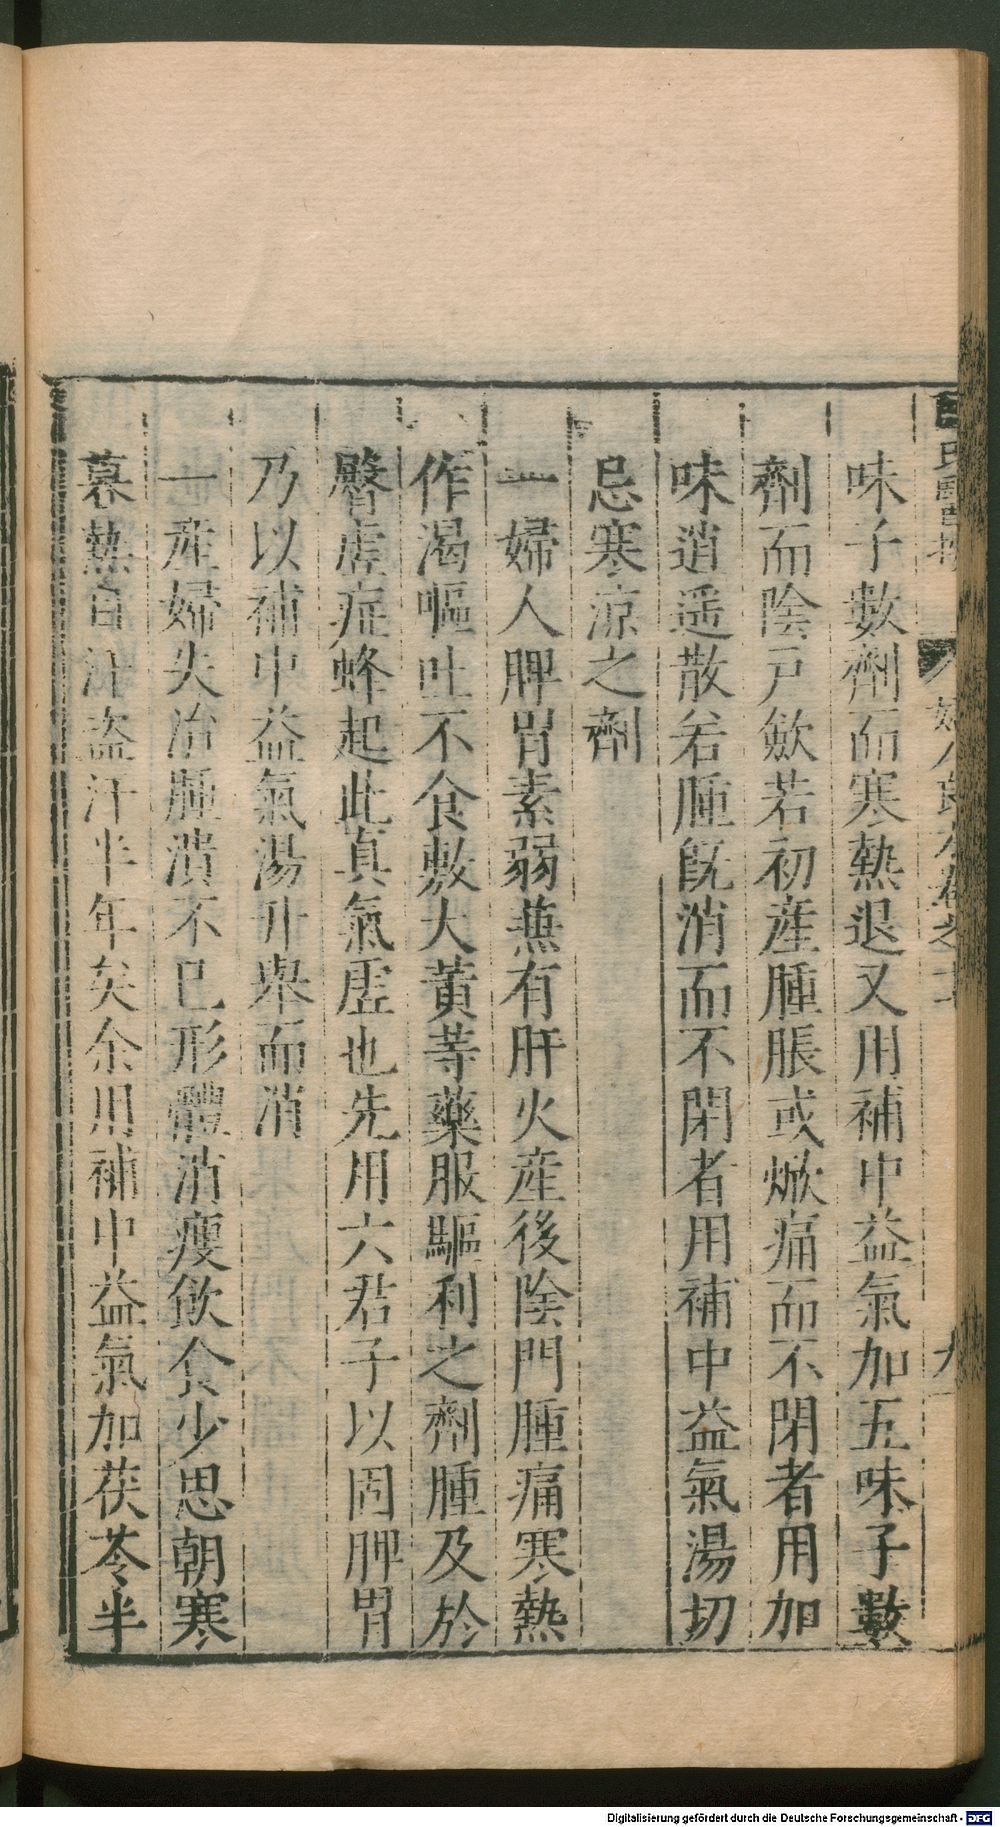 味子數劑而寒熱退又用補中益氣加五味子數
劑而陰戸斂若初産腫脹或焮痛而不閉者用加
味逍遥散若腫既消而不閉者用補中益氣湯切
忌寒涼之劑
一婦人脾胃素弱兼有肝火産後陰門腫痛寒熱
作渴嘔吐不食敷大黄等藥服驅利之劑腫及於
臀虚症蜂起此真氣虚也先用六君子以固脾胃
乃以補中益氣湯升舉而消
一産婦失治腫潰不已形體消瘦飲食少思朝寒
暮熱自汗盗汗半年矣余用補中益氣加茯苓半
Digitalisierung gefördert durch die Deutsche Forschungsgemeinschaft - DFG